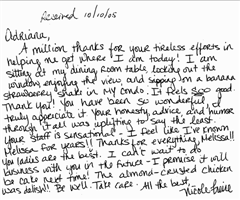 Received 10/10/05
Adriana,
A million thanks for your tireless efforts in
helping me get where I am today! I am
sitting at my dining room table, looking out the
window enjoying the view, and sipping on a banana
strawberry shake in my condo. It feels soo good.
Thank you! You have been so wonderful, I
truly appreciate it. Your honesty, advice and humor
through it all was uplifting to say the least.
Your staff is sensational - I feel like I've known
Melissa for years!! Thanks for everything Melissa!!
You ladies are the best. I can't wait to do
business with you in the future - I promise it will
be cake next time! The almond-crusted chicken
was delish!! Be well. Take care. All the best,
Nicole